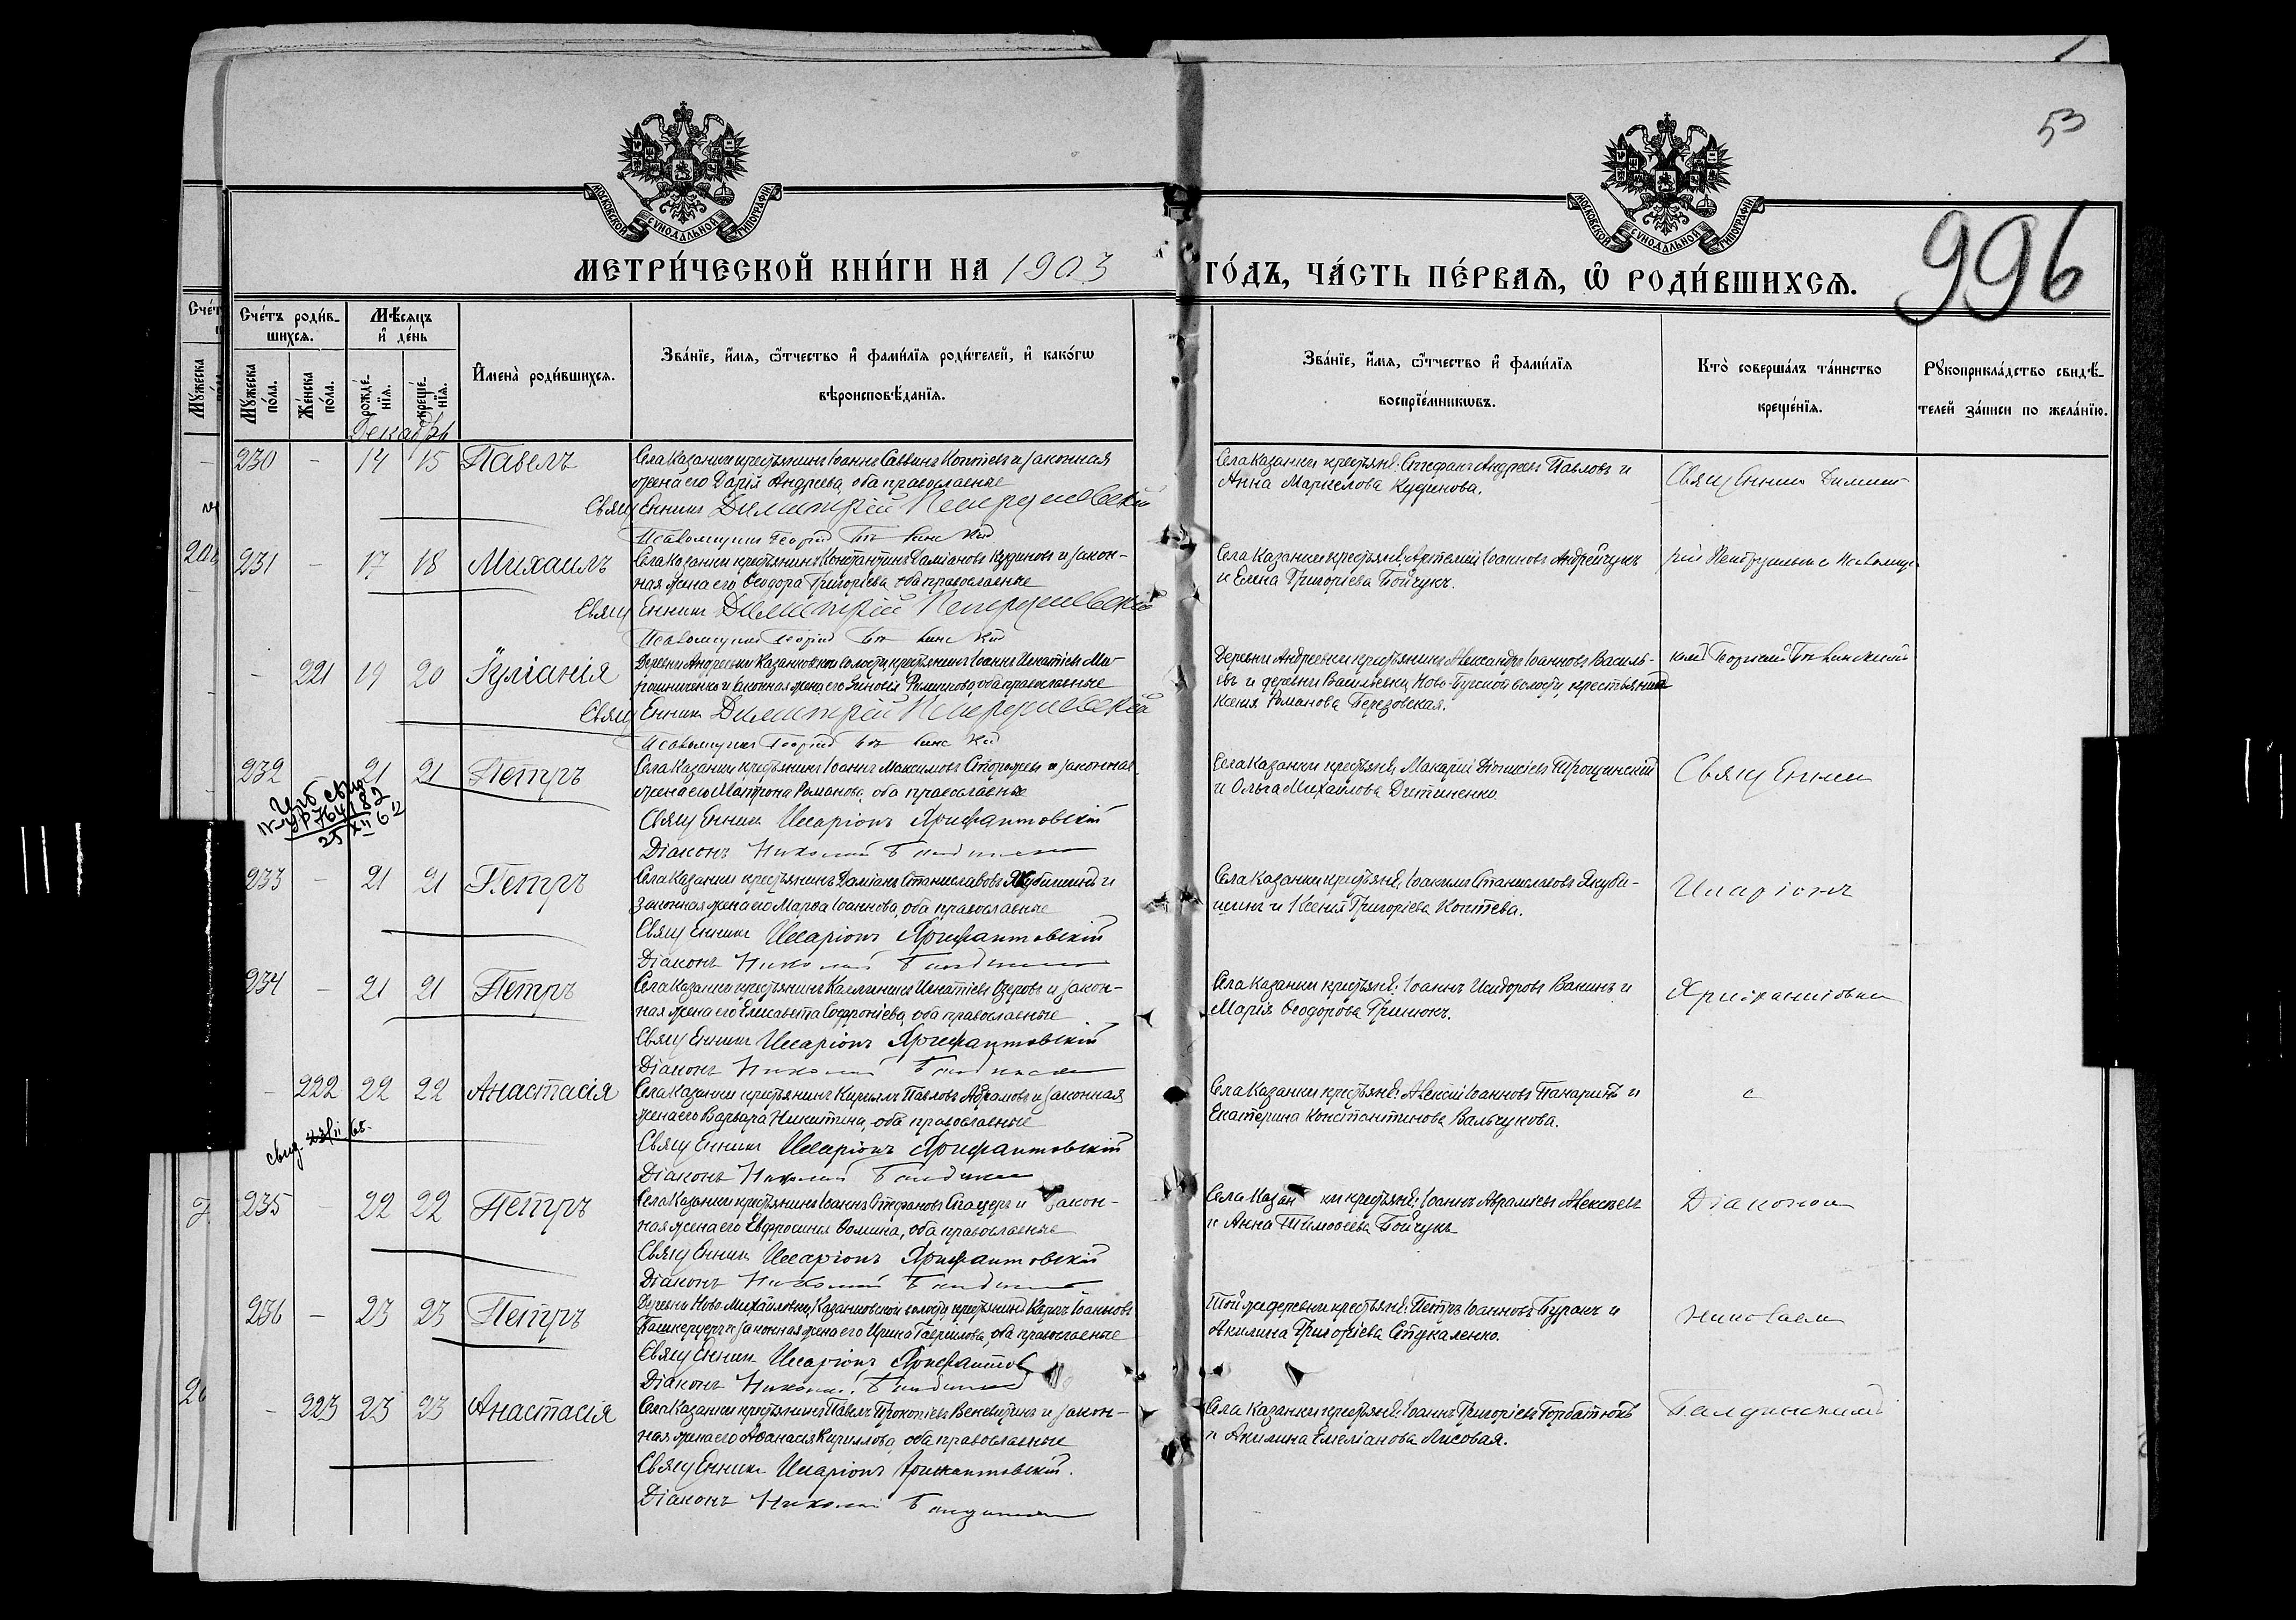 53
996
МОСКОВСКОЙ СѴНОДАЛЬНОЙ ТИПОГРАФІИ
МОСКОВСКОЙ СѴНОДАЛЬНОЙ ТИПОГРАФІИ
МЕТРИ́ЧЕСКОЙ КНИ́ГИ НА 1903
ГО́ДЪ, ЧА́СТЬ ПЕ́РВАѦ, Ѡ҆ РОДИ́ВШИХСѦ.
Сче́тъ роди́в-
шихсѧ.
Мѣ́сѧцъ
и҆ де́нь
Мꙋ́жеска
по́ла.
Же́нска
по́ла.
рожде́-
нїѧ.
креще́-
нїѧ.
И҆мена̀ роди́вшихсѧ.
Зва́нїе, и҆́мѧ, ѻ҆́тчество и҆ фами́лїѧ роди́телей, и҆ како́гѡ
вѣроисповѣ́данїѧ.
Зва́нїе, и҆́мѧ, ѻ҆́тчество и҆ фами́лїѧ
воспрїе́мникѡвъ.
Кто̀ соверша́лъ та́инство
креще́нїѧ.
Рꙋкоприкла́дство свидѣ́-
телей за́писи по жела́нїю.
Декабрь
230 - 14 15 Павелъ
Села Казанки крестьянинъ Іоаннъ Саввинъ Коптевъ и законная
жена его Дарія Андреева, оба православные
Священникъ Димитрій Петрушевскій
Псаломщикъ Георгій
Села Казанки крестьяне: Стефанъ Андреевъ Павловъ и
Анна Маркелова Кудинова.
Священникъ Димит-
231 - 17 18 Михаилъ
Села Казанки крестьянинъ Константинъ Даміановъ Кудиновъ и закон-
ная жена его Ѳеодора Григоріева, оба православные
Священникъ Димитрій Петрушевскій
Псаломщикъ Георгій
Села Казанки крестьяне: Артемій Іоанновъ Андрейчукъ
и Елена Григоріева Бойчукъ.
рій
- 221 19 20 Іуліанія
Деревни Андреевки Казанковской волости, крестьянинъ Іоаннъ Игнатіевъ Ми-
рошниченко и законная жена его Зиновія Филиппова, оба православные
Священникъ Димитрій Петрушевскій
Псаломщикъ Георгій
Деревни Андреевки крестьянинъ Александръ Іоанновъ Василь-
евъ и деревни Васильевки, Ново-Бугской волости, крестьянка
Ксенія Романова Березовская.
232 21 21 Петръ
Села Казанки крестьянинъ Іоаннъ Максимовъ Сторожевъ и законная
жена его Матрона Романова, оба православные
Священникъ Иларіонъ Ярифантовскій
Діаконъ Николай
Села Казанки крестьяне: Макарій Діонисіевъ Трощинскій
и Ольга Михайлова Дитиненко.
Священник
233 - 21 21 Петръ
Села Казанки крестьянинъ Даміанъ Станиславовъ Якубишинъ и
законная жена его Марѳа Іоаннова, оба православные
Священникъ Иларіонъ Ярифантовскій
Діаконъ Николай
Села Казанки крестьяне: Іоакимъ Станиславовъ Якуби-
шинъ и Ксенія Григоріева Коптева.
Иларіонъ
234 - 21 21 Петръ
Села Казанки крестьянинъ Каллиникъ Игнатіевъ Озеровъ и закон-
ная жена его Елисавета Софроніева, оба православные
Священникъ Иларіонъ Ярифантовскій
Діаконъ Николай
Села Казанки крестьяне: Іоаннъ Исидоровъ Ванинъ и
Марія Ѳеодорова Гринюкъ.
- 222 22 22 Анастасія
свид.
Села Казанки крестьянинъ Кириллъ Павловъ Абрамовъ и законная
жена его Варвара Никитина, оба православные
Священникъ Иларіонъ Ярифантовскій
Діаконъ Николай
Села Казанки крестьяне: Алексій Іоанновъ Токаринъ и
Екатерина Константинова Вальчукова.
с
235 - 22 22 Петръ
Села Казанки крестьянинъ Іоаннъ Стефановъ Слащевъ и закон-
ная жена его Евфросинія Ѳомина, оба православные
Священникъ Иларіонъ Ярифантовскій
Діаконъ Николай
Села Казанки крестьяне: Іоаннъ Авраміевъ Алексеевъ
и Анна Тимоѳеева Бойчукъ
Діаконом
236 - 23 23 Петръ
Деревни Ново-Михайловки, Казанковской волости, крестьянинъ Карпъ Іоанновъ
и законная жена его Ирина Гавриилова, оба православные
Священникъ Иларіонъ
Діаконъ Николай
Той же деревни крестьяне: Петръ Іоанновъ Буракъ и
Акилина Григоріева Стукаленко.
Николаем
- 223 23 23 Анастасія
Села Казанки крестьянинъ Павелъ Прокопіевъ Веневитинъ и закон-
ная жена его Аѳанасія Кириллова, оба православные
Священникъ Иларіонъ Ярифантовскій.
Діаконъ Николай
Села Казанки крестьяне: Іоаннъ Григоріевъ Горбатюкъ
и Акилина Емеліанова Лисовая.